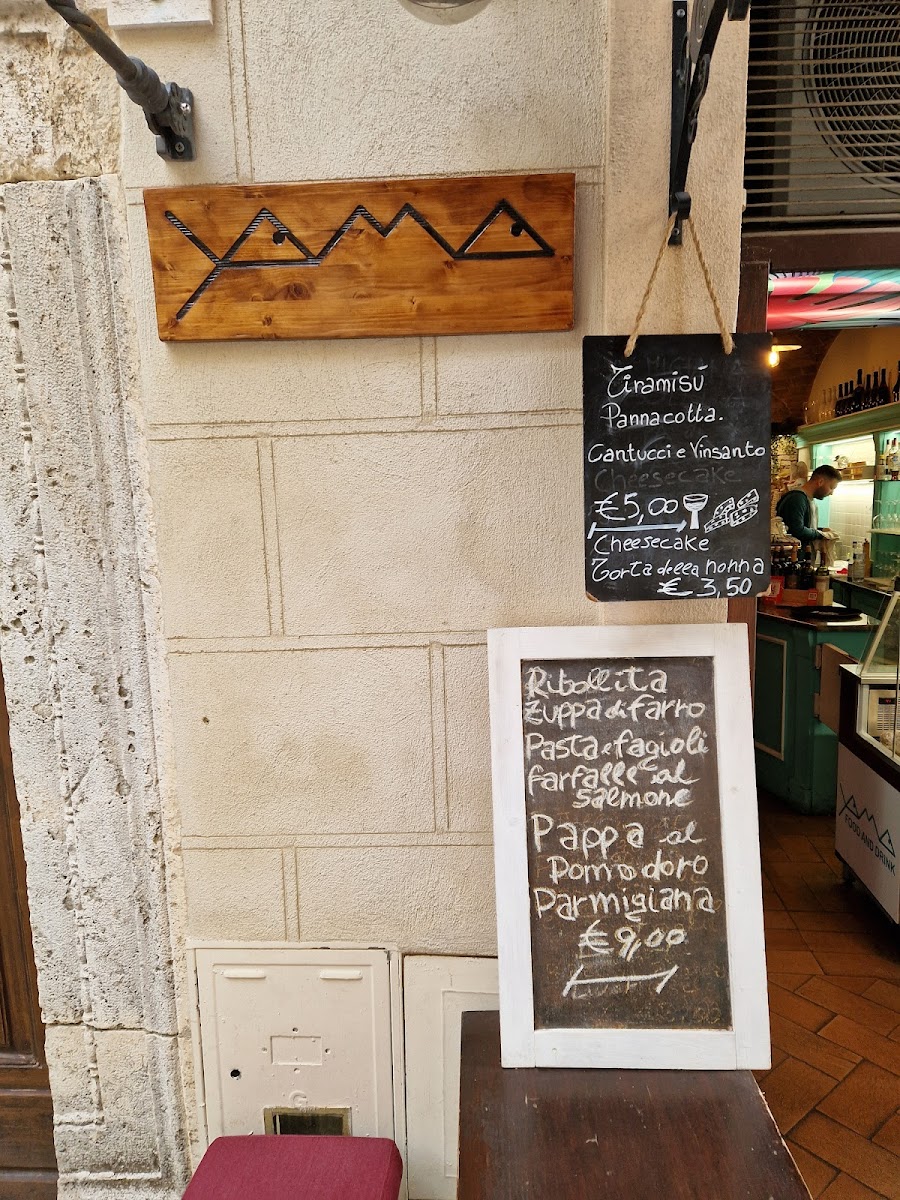 YAMA
Tiramisú
Pannacotta.
Cantucci e Vinsanto
Cheesecake
€5,00
Cheesecake
Torta della nonna
€ 3,50
Ribollita
Zuppa di farro
Pasta e fagioli
farfalle al
salmone
Pappa al
Pomodoro
Parmigiana
€9,00
YAMA
FOOD AND DRINK
G